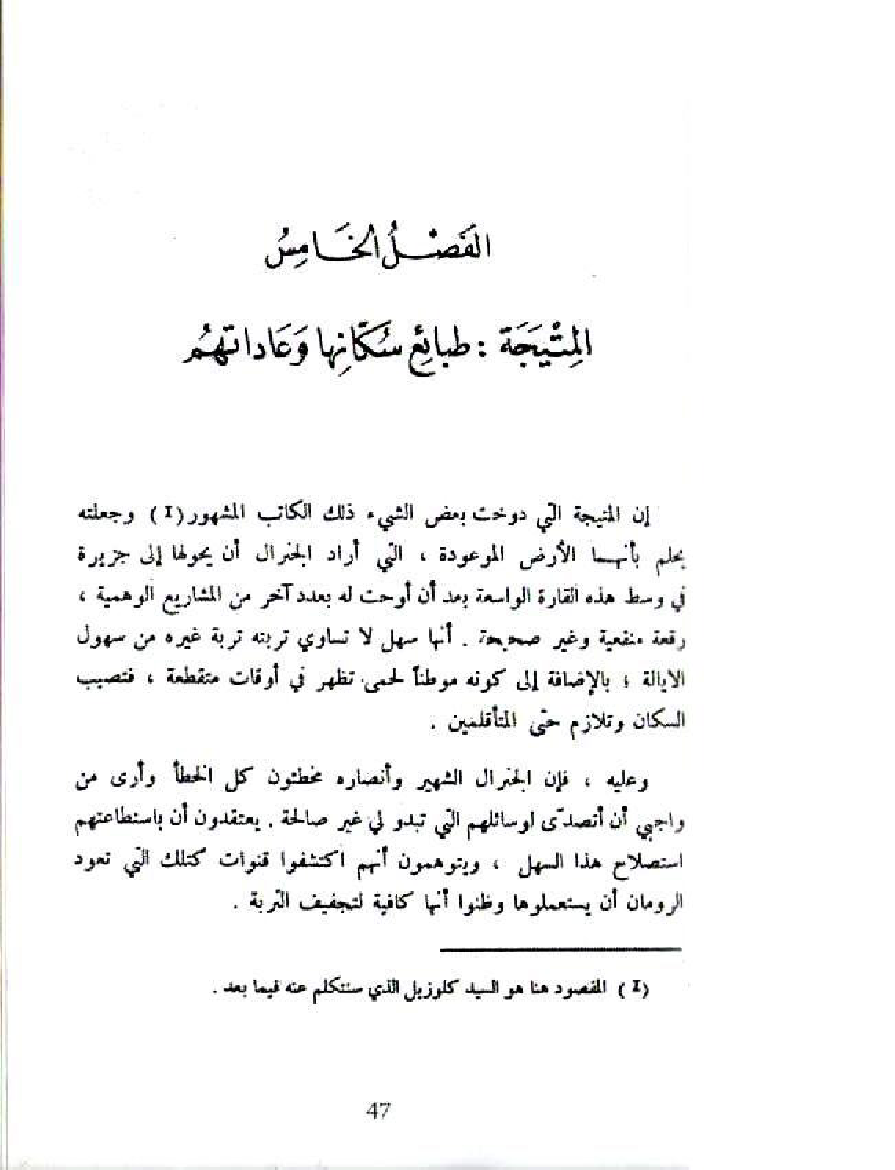 الفَصْلُ الخَامِسُ
المِتْيَجَة : طبائِع سُكّانِها وَعَاداتهُم
إن المتيجة التي دوخت بعض الشيء ذلك الكاتب المشهور(I) وجعلته
يحلم بأنهـا الأرض الموعودة ، التي أراد الجنرال أن يحولها إلى جزيرة
في وسط هذه القارة الواسعة بعد أن أوحت له بعدد آخر من المشاريع الوهمية ،
رقعة منقعية وغير صحيحة . أنها سهل لا تساوي تربته تربة غيره من سهول
الايالة ؛ بالإضافة إلى كونه موطناً لحمى تظهر في أوقات متقطعة ، فتصيب
السكان وتلازم حتى المتأقلمين .
وعليه ، فإن الجنرال الشهير وأنصاره مخطئون كل الخطأ وأرى من
واجبي أن أتصدّى لوسائلهم التي تبدو لي غير صالحة . يعتقدون أن باستطاعتهم
استصلاح هذا السهل ، ويتوهمون أنهم اكتشفوا قنوات كتلك التي تعود
الرومان أن يستعملوها وظنوا أنها كافية لتجفيف التربة .
(I) المقصود هنا هو السيد كلوزيل الذي سنتكلم عنه فيما بعد .
47